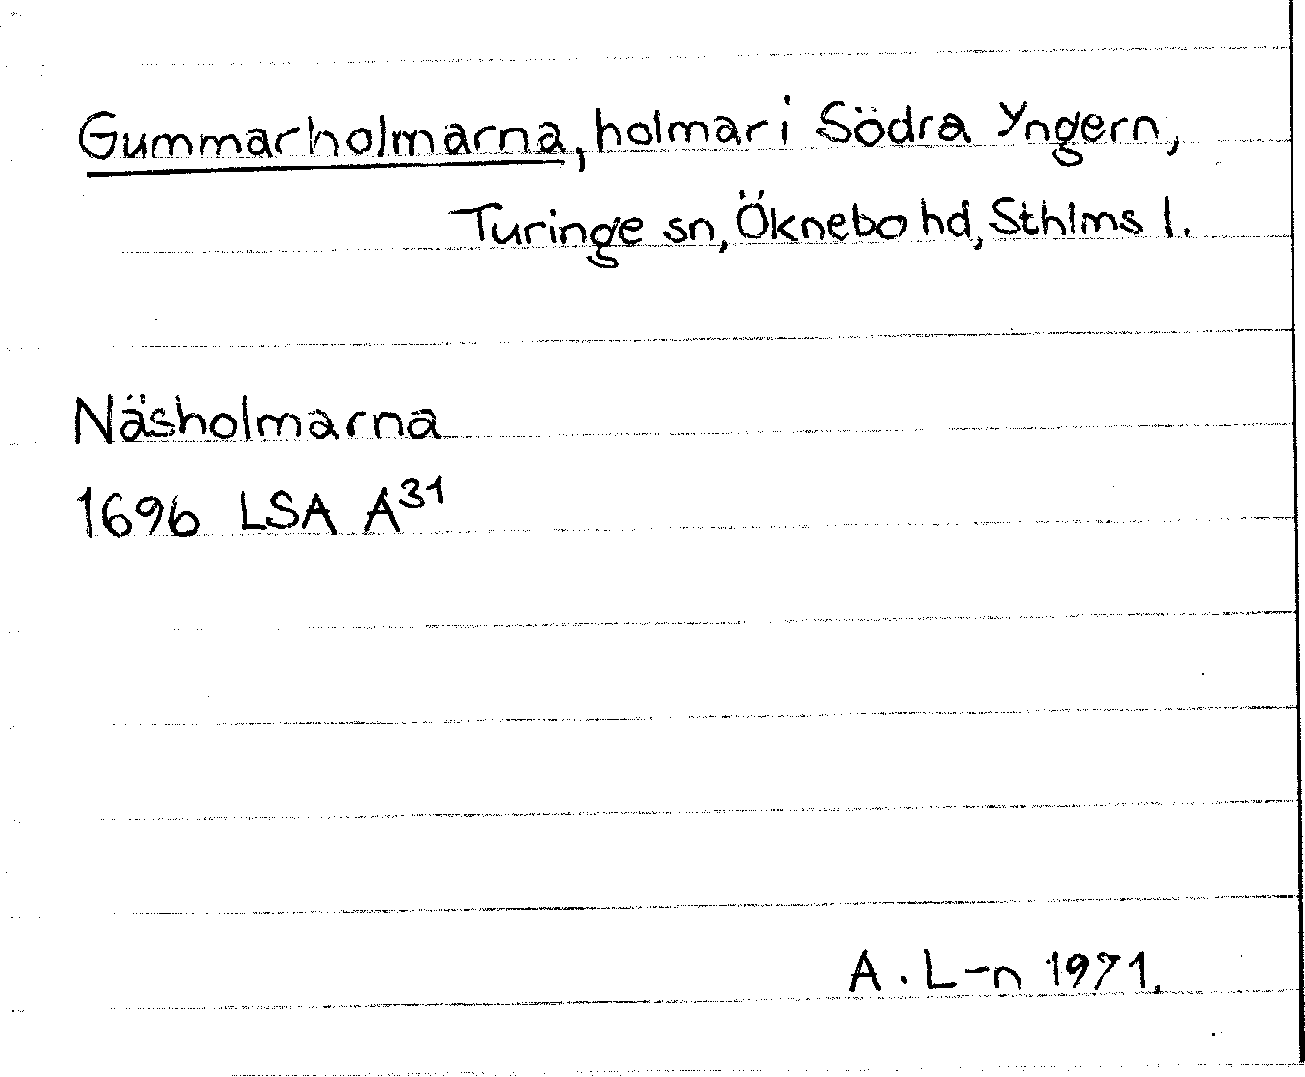 Gummarholmarna, holmar i Södra Yngern,
Turinge sn, Öknebo hd, Sthlms l.
Näsholmarna
1696 LSA A³¹
A. L-n 1971.